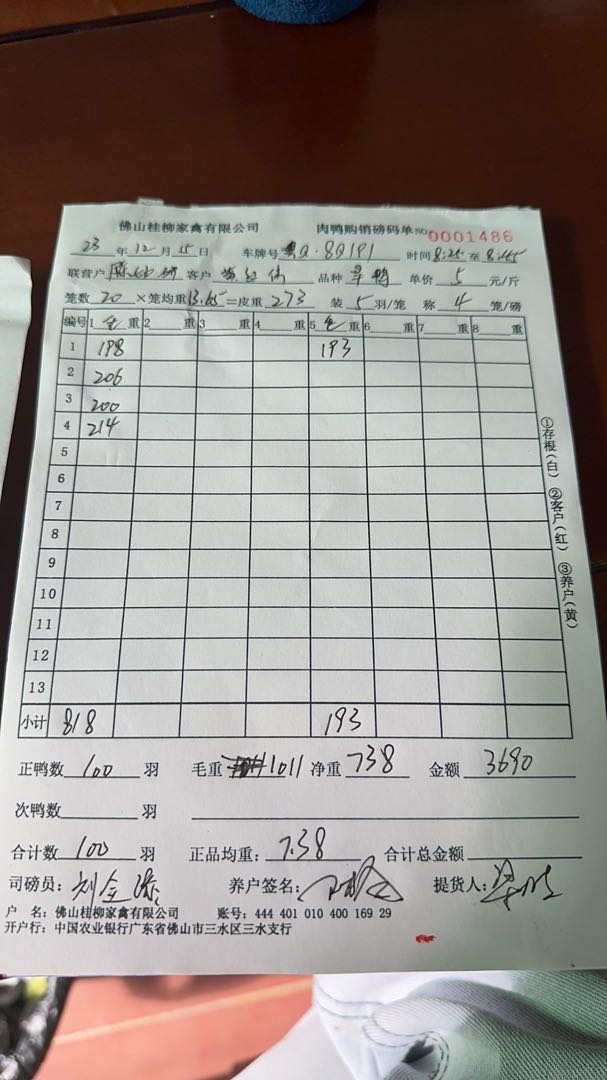 佛山桂柳家禽有限公司 肉鸭购销磅码单 NO 0001486
23 年 12 月 15 日 车牌号 粤Q·8Q1P1 时间 8:25 至 8:45
联营户 客户 品种 旱鸭 单价 5 元/斤
笼数 20 ×笼均重 13.65 =皮重 273 装 5 羽/笼 称 4 笼/磅
编号 1 毛 重 2 重 3 重 4 重 5 毛 重 6 重 7 重 8 重
1 198 193
2 206
3 200
4 214
5
6
7
8
9
10
11
12
13
小计 818 193
正鸭数 100 羽 毛重 1011 净重 738 金额 3690
次鸭数 羽
合计数 100 羽 正品均重: 7.38 合计总金额
司磅员: 养户签名: 提货人:
户 名: 佛山桂柳家禽有限公司 账号: 444 401 010 400 169 29
开户行: 中国农业银行广东省佛山市三水区三水支行
①存根(白) ②客户(红) ③养户(黄)